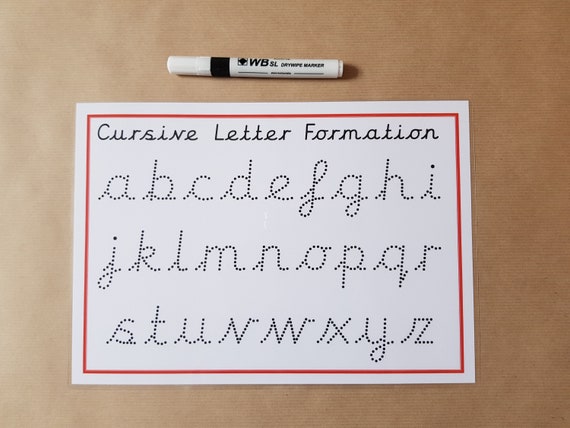 WB SL DRYWIPE MARKER
Cursive Letter Formation
a b c d e f g h i
j k l m n o p q r
s t u v w x y z